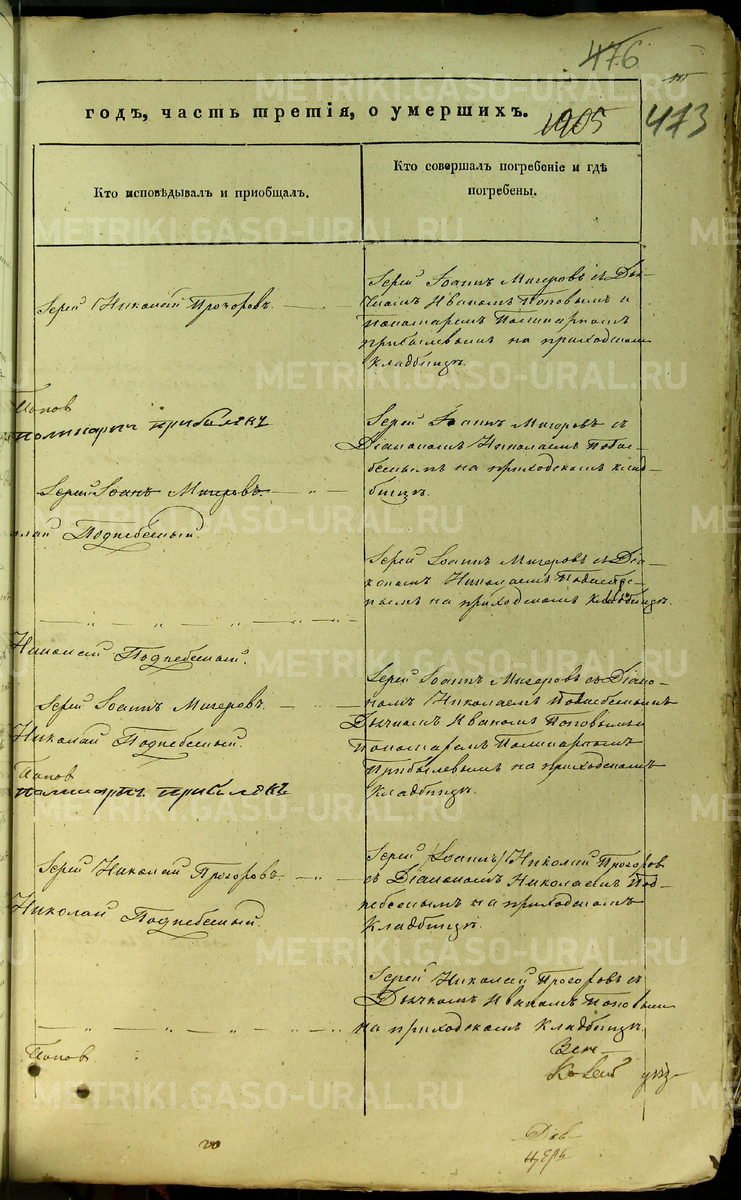 476
годъ, часть третія, о умершихъ.
1905
473
Кто исповѣдывалъ и пріобщалъ.
Кто совершалъ погребеніе и гдѣ
погребены.
METRIKI.GASO-URAL.RU
Іерей Николай Прозоровъ
Іерей Іоаннъ Мигеровъ съ Дья-
чкомъ Иваномъ Поповымъ и
Пономаремъ Полинарпомъ
Прибылевымъ на приходскомъ
кладбищѣ.
Попов
Прибылевъ
Іерей Іоаннъ Мигеровъ с
Діакономъ Николаемъ Подне-
беснымъ на приходскомъ клад-
бищѣ.
Іерей Іоаннъ Мигеровъ
лай Поднебесный.
Іерей Іоаннъ Мигеровъ съ Діа-
кономъ Николаемъ Поднебес-
нымъ на приходскомъ кладбищѣ.
Николай Поднебесный.
Іерей Іоаннъ Мигеровъ.
Николай Поднебесный.
Попов
Прибылевъ
Іерей Іоаннъ Мигеровъ съ Діако-
номъ Николаемъ Поднебеснымъ
Дьячкомъ Иваномъ Поповымъ и
Пономаремъ Полинарпомъ
Прибылевымъ на приходскомъ
кладбищѣ.
Іерей Николай Прозоровъ
Николай Поднебесный.
Іерей (Іоаннъ) Николай Прозоров
съ Діакономъ Николаемъ Под-
небеснымъ на приходскомъ
кладбищѣ.
Іерей Николай Прозоровъ с
Дьячкомъ Иваномъ Поповым
на приходскомъ кладбищѣ.
Попов